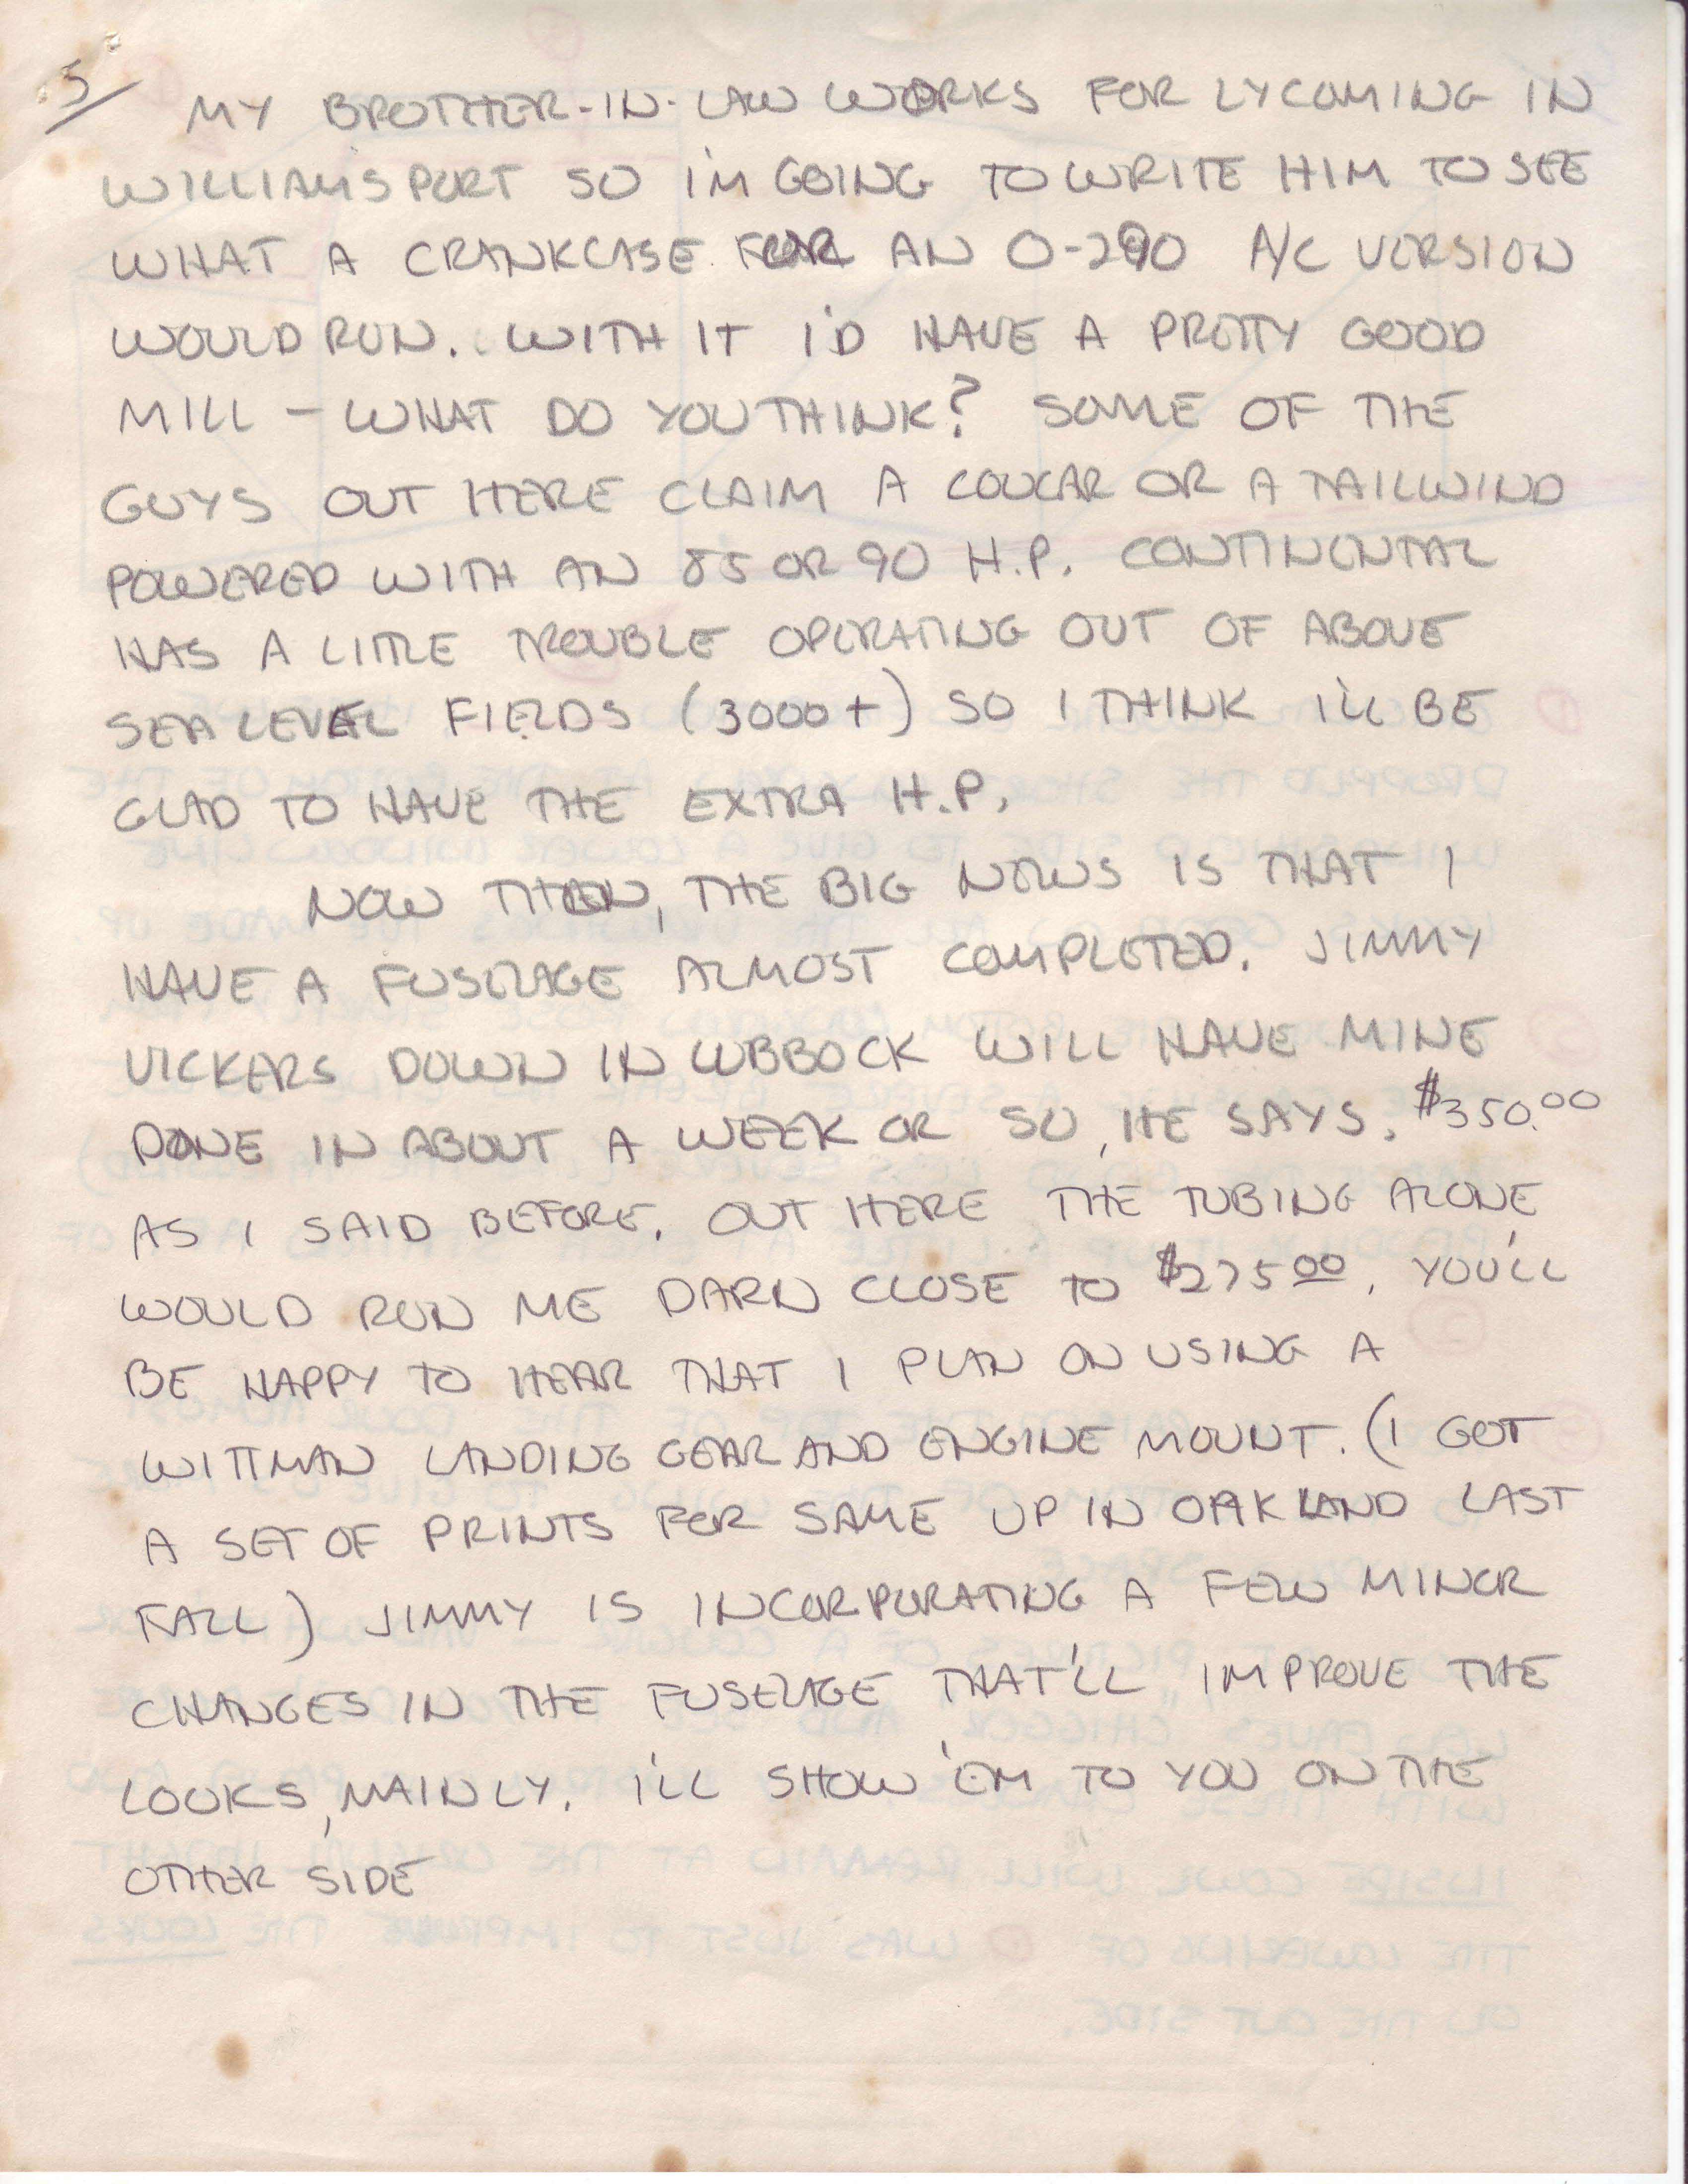 5/
MY BROTHER-IN-LAW WORKS FOR LYCOMING IN
WILLIAMSPORT SO I'M GOING TO WRITE HIM TO SEE
WHAT A CRANKCASE FOR AN O-290 A/C VERSION
WOULD RUN. WITH IT I'D HAVE A PRETTY GOOD
MILL – WHAT DO YOU THINK? SOME OF THE
GUYS OUT HERE CLAIM A COUGAR OR A TAILWIND
POWERED WITH AN 85 OR 90 H.P. CONTINENTAL
HAS A LITTLE TROUBLE OPERATING OUT OF ABOVE
SEA LEVEL FIELDS (3000+) SO I THINK I'LL BE
GLAD TO HAVE THE EXTRA H.P.
NOW THEN, THE BIG NEWS IS THAT I
HAVE A FUSELAGE ALMOST COMPLETED. JIMMY
VICKERS DOWN IN LUBBOCK WILL HAVE MINE
DONE IN ABOUT A WEEK OR SO, HE SAYS. $350.00
AS I SAID BEFORE. OUT HERE THE TUBING ALONE
WOULD RUN ME DARN CLOSE TO $275 00. YOU'LL
BE HAPPY TO HEAR THAT I PLAN ON USING A
WITTMAN LANDING GEAR AND ENGINE MOUNT. (I GOT
A SET OF PRINTS FOR SAME UP IN OAKLAND LAST
FALL) JIMMY IS INCORPORATING A FEW MINOR
CHANGES IN THE FUSELAGE THAT'LL IMPROVE THE
LOOKS, MAINLY. I'LL SHOW 'EM TO YOU ON THE
OTHER SIDE